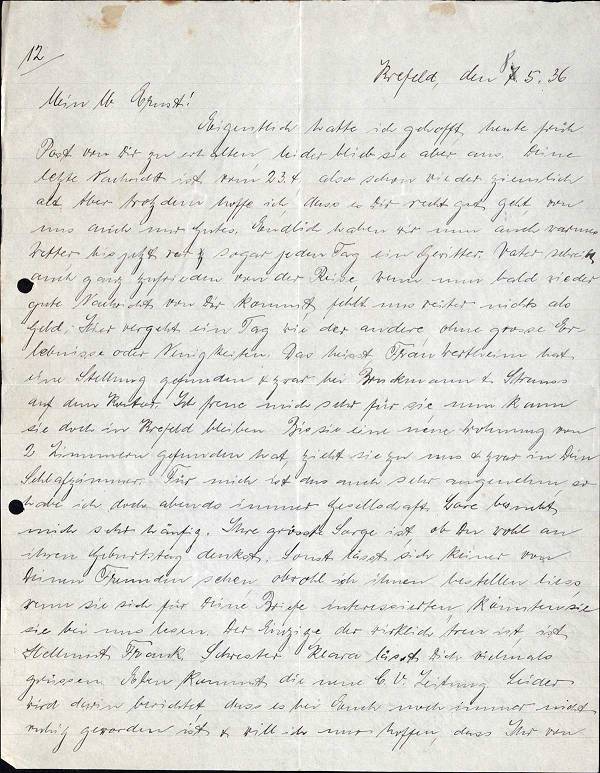 12
Krefeld, den 8. 5. 36
Mein lb Ernst!
Eigentlich hatte ich gehofft, heute früh
Post von Dir zu erhalten, leider blieb sie aber aus. Deine
letzte Nachricht ist vom 23.4 also schon wieder ziemlich
alt. Aber trotzdem hoffe ich, dass es Dir recht gut geht von
uns auch nur Gutes. Endlich haben wir nun auch warmes
Wetter bis jetzt war sogar jeden Tag ein Gewitter. Vater schrieb
auch ganz zufrieden von der Reise, wenn nun bald wieder
gute Nachricht von Dir kommt, fehlt uns weiter nichts als
Geld. Hier vergeht ein Tag wie der andere ohne grosse Er-
lebnisse oder Neuigkeiten. Das heisst Frau Wertheim hat
eine Stellung gefunden & zwar bei Bruckmann & Strauss
auf dem Kontor. Ich freue mich sehr für sie nun kann
sie doch in Krefeld bleiben. Bis sie eine neue Wohnung von
2 Zimmern gefunden hat, zieht sie zu uns & zwar in Dein
Schlafzimmer. Für mich ist das auch sehr angenehm so
habe ich doch abends immer Gesellschaft. Lore besucht
mich sehr häufig. Ihre grösste Sorge ist, ob Du wohl an
ihren Geburtstag denkst. Sonst lässt sich keiner von
Deinen Freunden sehen obwohl ich ihnen bestellen liess,
wenn sie sich für Deine Briefe interessierten, könnten sie
sie bei uns lesen. Der Einzige der wirklich treu ist, ist
Hellmut Frank. Schwester Klara lässt Dich vielmals
grüssen. Eben kommt die neue C.V. Zeitung. Leider
wird darin berichtet dass es bei Euch noch immer nicht
ruhig geworden ist & will ich nur hoffen, dass Ihr von